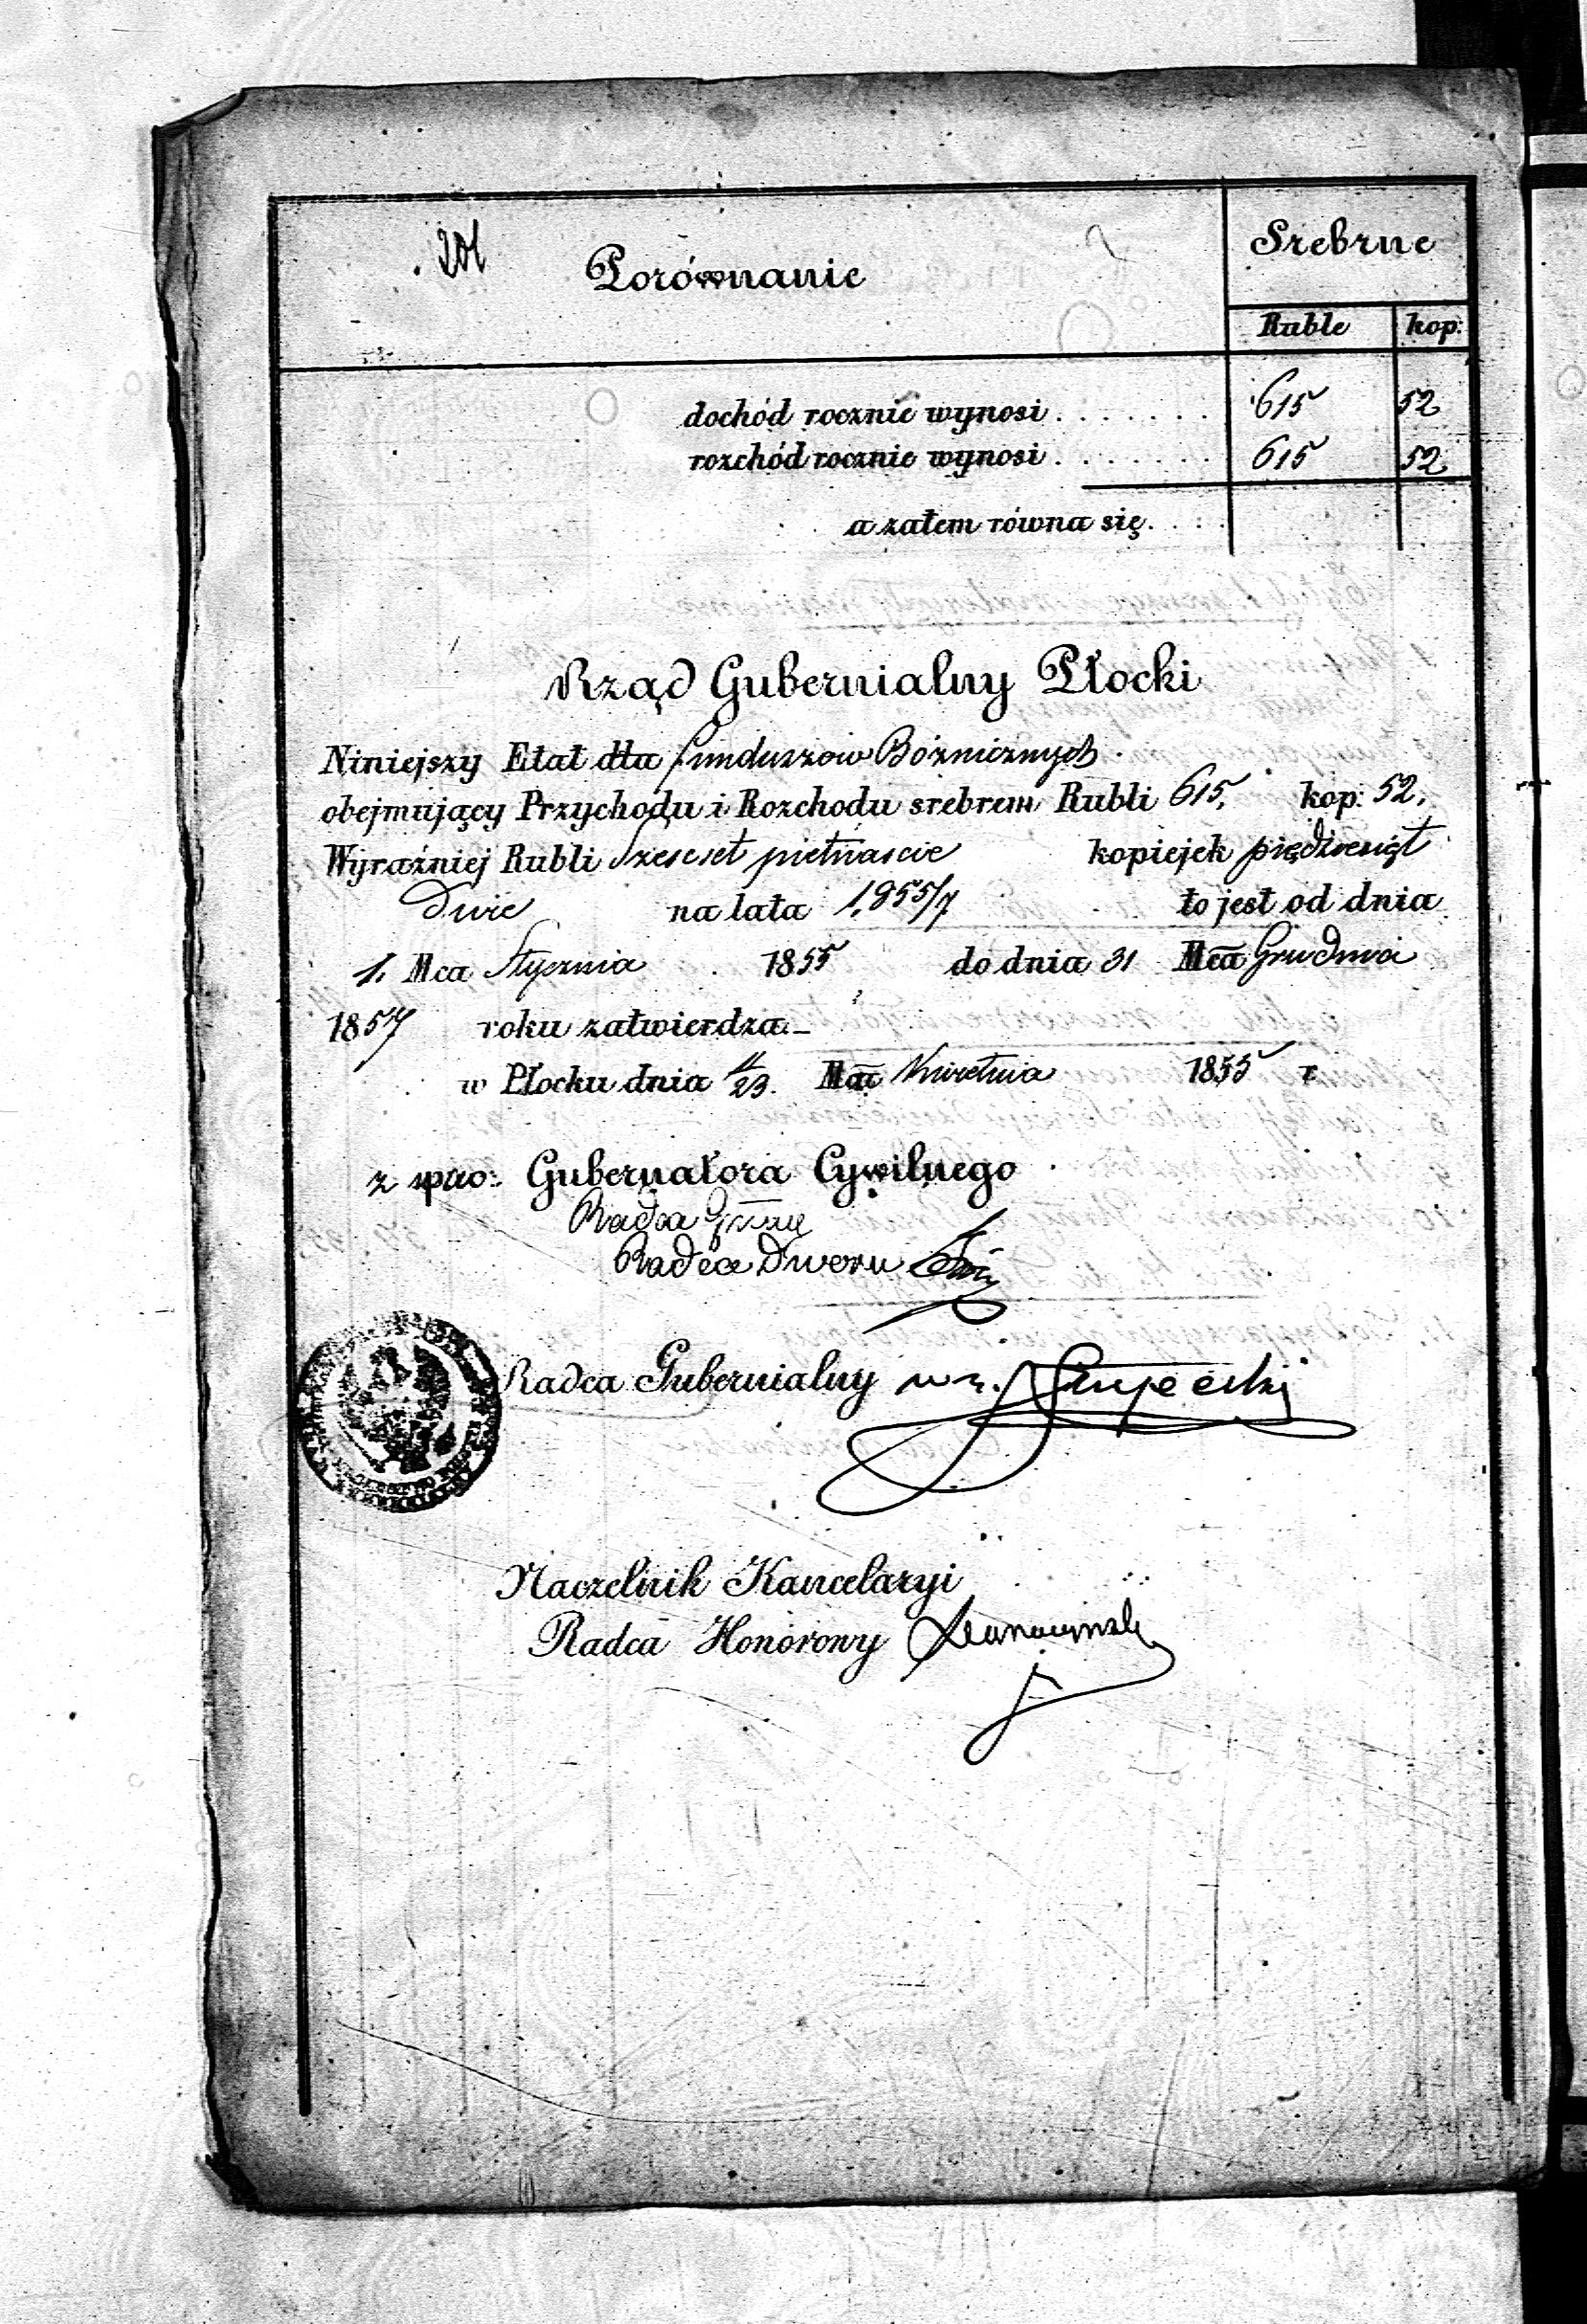 201
Porównanie
Srebrne
Ruble kop:
dochód rocznie wynosi . . . . . . . 615 52
rozchód rocznie wynosi . . . . . . . 615 52
a zatem równa się. . . .
Rząd Gubernialny Płocki
Niniejszy Etat dla funduszow Bożnicznych
obejmujący Przychodu i Rozchodu srebrem Rubli 615. kop: 52.
Wyraźniej Rubli Szescset pietnascie kopiejek pięździesiąt
dwie na lata 1855/7 to jest od dnia
1. Mca Stycznia 1855 do dnia 31 Mca Grudnia
1857 roku zatwierdza.—
w Płocku dnia 11/23. Mca Kwietnia 1855 r.
z upo: Gubernatora Cywilnego
Radca
Radca Dworu
Radca Gubernialny w z.
Naczelnik Kancelaryi
Radca Honorowy